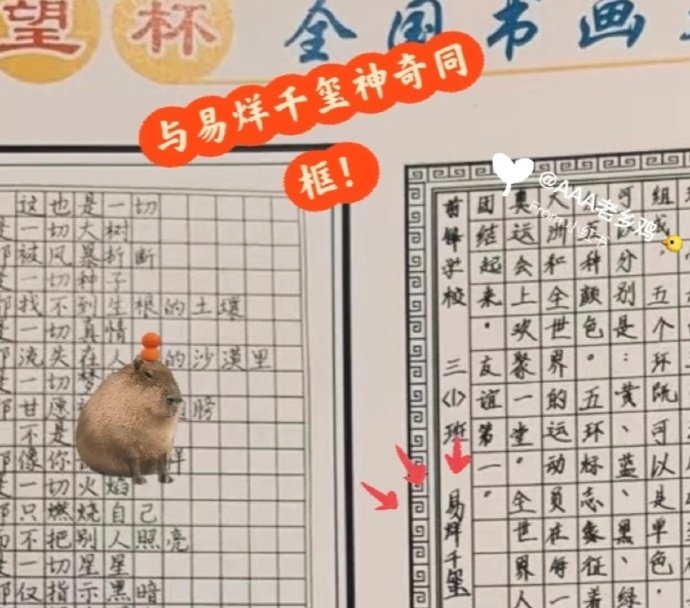 望杯 全国书画
与易烊千玺神奇同
框！
@AAA老乡鸡
From小红书
这也是一切
是一切大树
都被风暴折断
是一切种子
都找不到生根的土壤
是一切真情
都流失在人 的沙漠里
是一切梦
都甘愿 膀
不是
都像你
是一切火焰
都只燃烧自己
而不把别人照亮
是一切星星
都仅指示黑暗
组成，五环既可以是单色
河 分别是：黄、蓝、黑、绿
种颜色。五环标志象征着
大洲和全世界的运动员在每一
奥运会上欢聚一堂。全世界人
团结起来，友谊第一。
前锋学校 三(1)班 易烊千玺